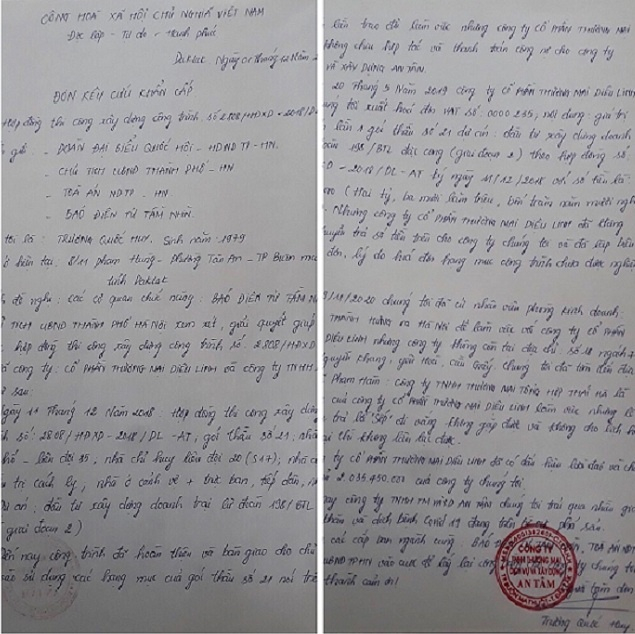 CỘNG HOÀ XÃ HỘI CHỦ NGHĨA VIỆT NAM
Độc lập - Tự do - Hạnh phúc
Daklak Ngày 01 Tháng 12 Năm 2
ĐƠN KÊU CỨU KHẨN CẤP
Hợp đồng thi công xây dựng công trình. Số 2808/HĐXD - 2018/DL
gửi - ĐOÀN ĐẠI BIỂU QUỐC HỘI - HĐND TP - HN.
- CHỦ TỊCH UBND THÀNH PHỐ - HN
- TOÀ ÁN NDTP - HN
- BÁO ĐIỆN TỬ TẦM NHÌN.
Tôi là: TRƯƠNG QUỐC HUY. Sinh năm: 1979
tại: 8/11 phạm Hùng - Phường Tân An - TP Buôn
tỉnh Daklak
đề nghị: các cơ quan chức năng: BÁO ĐIỆN TỬ TẦM N
TỊCH UBND THÀNH PHỐ HÀ NỘI xem xét, giải quyết giúp
hợp đồng thi công xây dựng công trình số 2808/HĐXD
công ty: CỔ PHẦN THƯƠNG MẠI DIỆU LINH và công ty TNHH
sau:
ngày 11 Tháng 12 Năm 2018: Hợp đồng thi công xây dựn
số: 2808/HĐXD-2018/DL-AT, gói thầu số 21, nhà
liên đội 35, nhà chỉ huy liên đội 20 (S17); nhà
cách ly, nhà ở cảnh vệ + trực ban, tiếp dân,
đầu tư xây dựng doanh trại lữ đoàn 198/BTL
giai đoạn 2)
Đến nay công trình đã hoàn thiện và bàn giao cho chủ
sử dụng các hạng mục của gói thầu số 21 nói tr
lần trao đổi làm việc nhưng công ty CỔ PHẦN THƯƠNG MẠI
không chịu hợp tác và thanh toán công nợ cho công ty
VÀ XÂY DỰNG AN TÂM.
20 Tháng 5 Năm 2019 công ty CỔ PHẦN THƯƠNG MẠI DIỆU LINH
tôi xuất hoá đơn VAT số: 0000235, nội dung: giá trị
lần 1 gói thầu số 21 dự án: đầu tư xây dựng doanh
198/BTL đặc công (giai đoạn 2) theo hợp đồng số
- 2018/DL-AT ký ngày 11/12/2018 với số tiền là:
(Hai tỷ, ba mươi lăm triệu, bốn trăm năm mươi nghì
Nhưng công ty CỔ PHẦN THƯƠNG MẠI DIỆU LINH đã không
trả số tiền trên cho công ty chúng tôi và
đơn, lý do hoá đơn hạng mục công trình chưa được nghiệm
/11/2020 chúng tôi đã cử nhân viên phòng kinh doanh:
THÀNH HƯNG ra HÀ NỘI để làm việc với công ty CỔ PHẦN
DIỆU LINH nhưng công ty không còn tại địa chỉ: số 18 ngách
Nguyễn Khang, Yên Hoà, Cầu Giấy. Chúng tôi đã tìm đến địa
Phạm Hàm: công ty TNHH THƯƠNG MẠI TỔNG HỢP THÁI HÀ là
của công ty CỔ PHẦN THƯƠNG MẠI DIỆU LINH làm việc nhưng
trả là "Sếp" đi vắng không gặp được và không cho lịch
thì không liên lạc được.
ty CỔ PHẦN THƯƠNG MẠI DIỆU LINH đã có dấu hiệu lừa đảo và
2.035.450.000 của công ty chúng tôi.
nay công ty TNHH TM VÀ XD AN TÂM chúng tôi trải qua nhiều
khăn và dịch bệnh Covid 19 đang trên bờ vực phá sản.
các cấp ban ngành cùng BÁO TOÀ ÁN
UBND TP HN vào cuộc để lấy lại công chúng
thành cảm ơn!
CÔNG TY
TNHH THƯƠNG MẠI
DỊCH VỤ VÀ XÂY DỰNG
AN TÂM
người làm đơn
Trương Quốc Huy